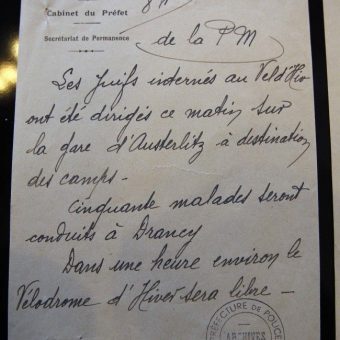 Cabinet du Préfet
Secrétariat de Permanence
de la PM
Les Juifs internés au Vel d'Hiv
ont été dirigés ce matin sur
la gare d'Austerlitz à destination
des camps -
Cinquante malades seront
conduits à Drancy
Dans une heure environ le
Vélodrome d'Hiver sera libre -
PRÉFECTURE DE POLICE
ARCHIVES